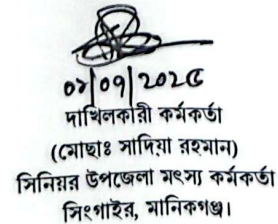 ০৮/০৭/২০২৫
দাখিলকারী কর্মকর্তা
(মোছাঃ সাদিয়া রহমান)
সিনিয়র উপজেলা মৎস্য কর্মকর্তা
সিংগাইর, মানিকগঞ্জ।